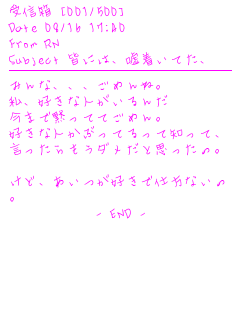 受信箱 [001/500]
Date 08/16 17:40
From RN
Subject 皆には、嘘着いてた、
みんな、、、ごめんね。
私、好きな人がいるんだ
今まで黙っててごめん。
好きな人かぶってるって知って、
言ったらもうダメだと思ったの。
けど、あいつが好きで仕方ないの
。
- END -